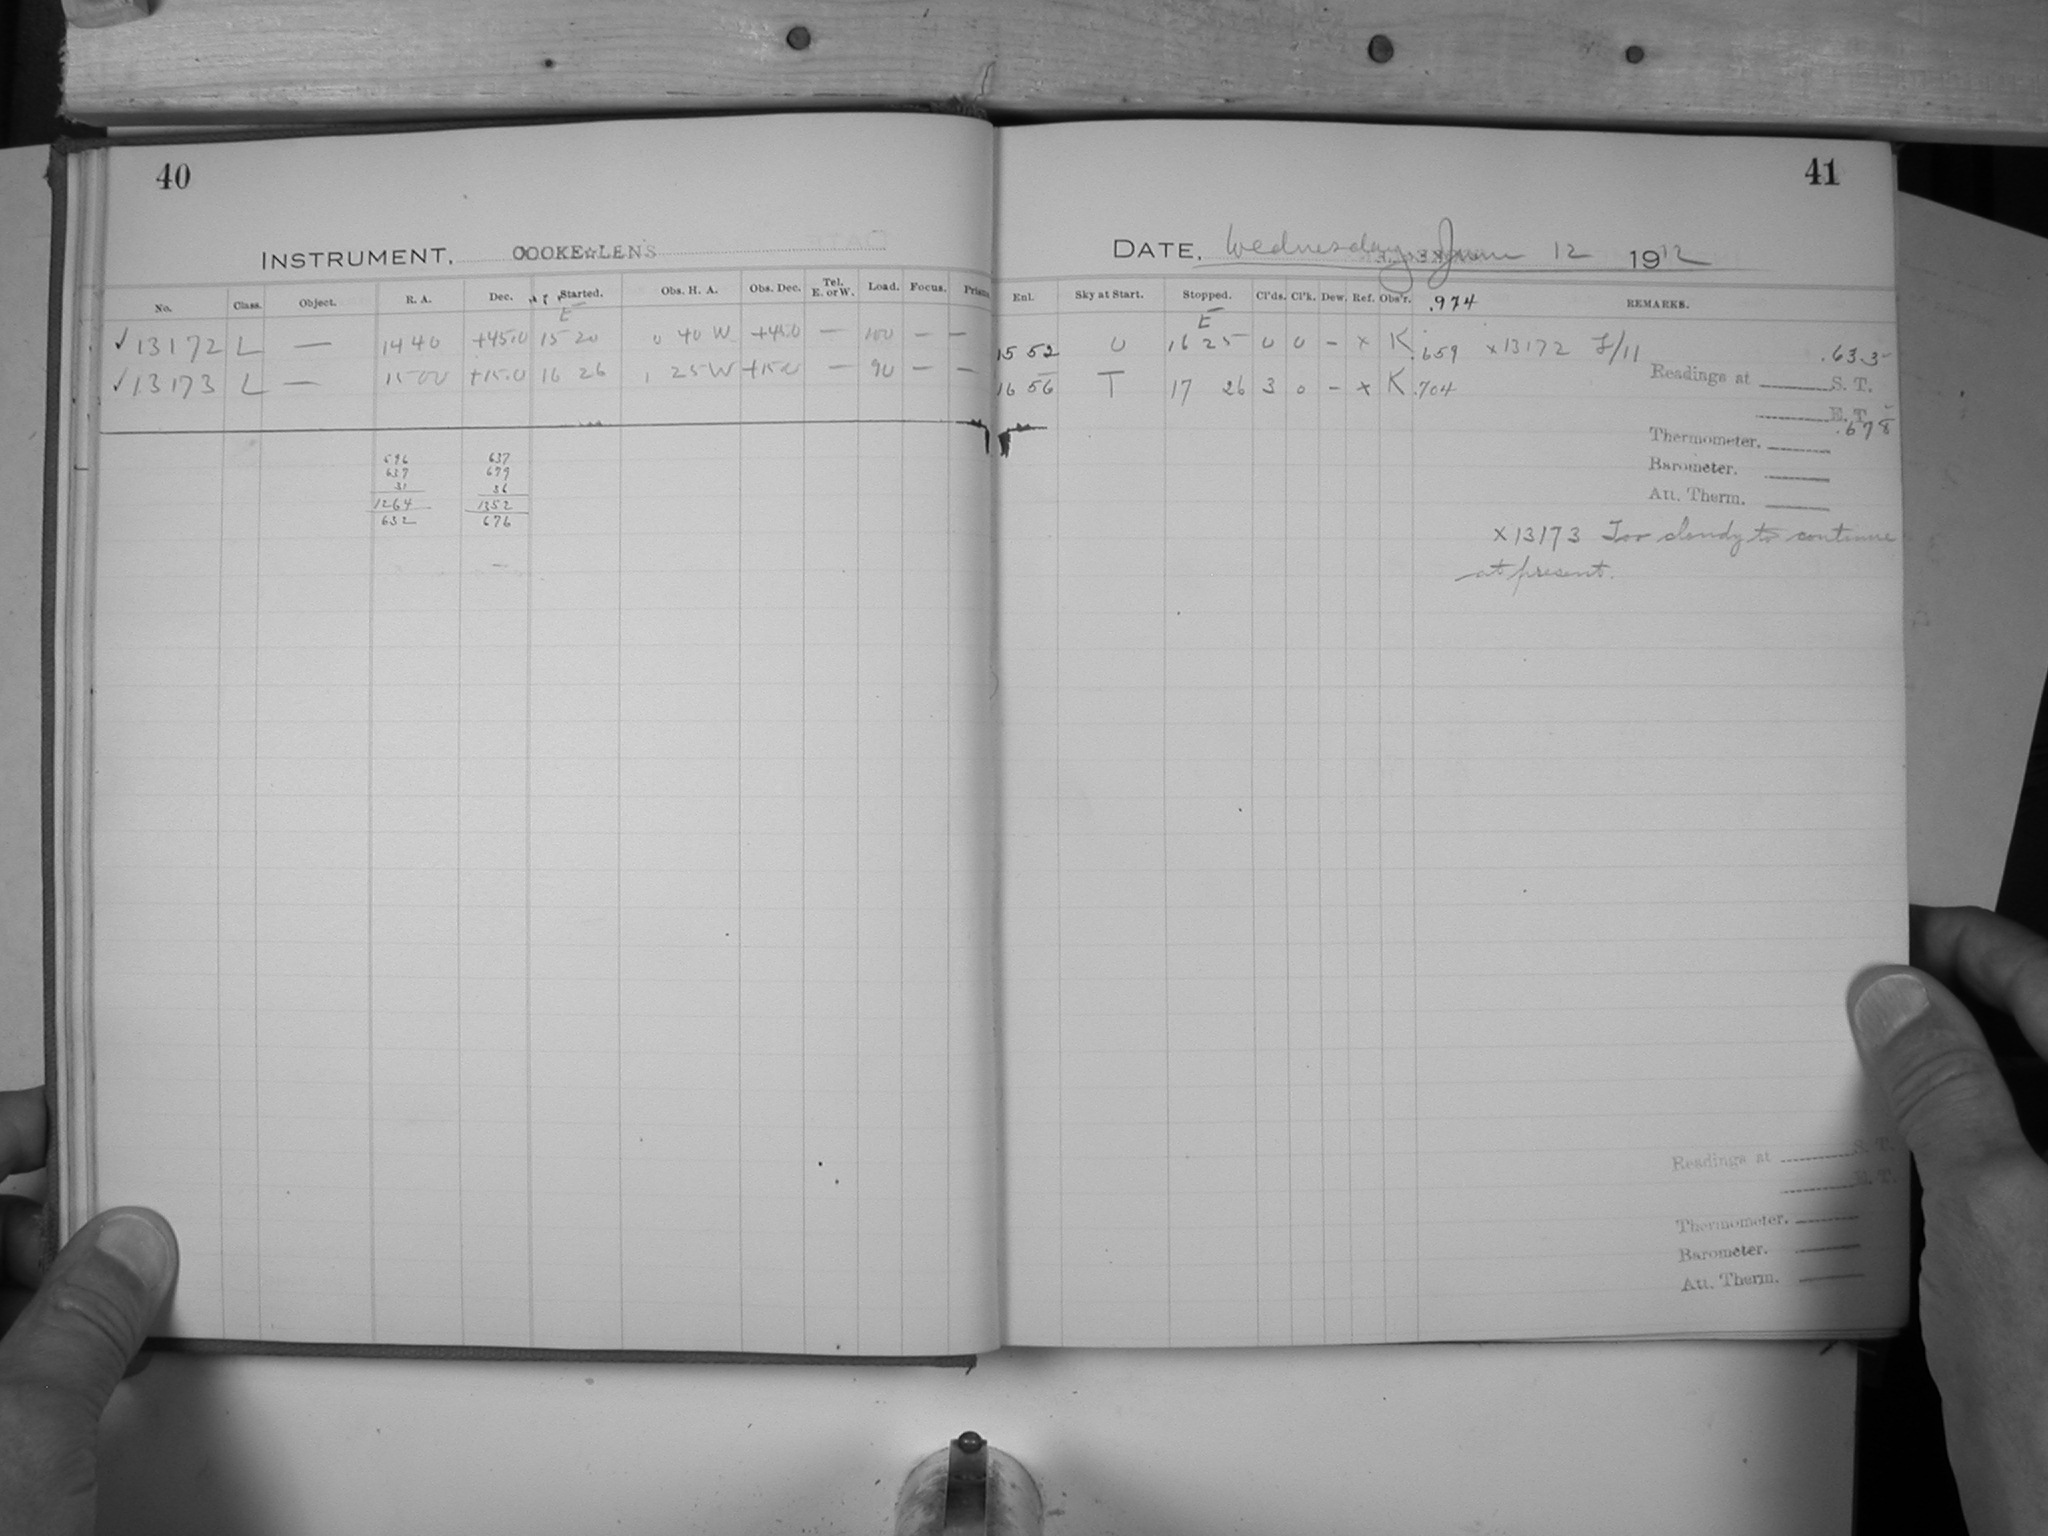 40
41
INSTRUMENT, COOKE☆LENS
DATE, Wednesday June 12 1912
No. Class. Object. R. A. Dec. Started. Obs. H. A. Obs. Dec. Tel. E. or W. Load. Focus. Prism.
Enl. Sky at Start. Stopped. Cl'ds. Cl'k. Dew. Ref. Obs'r. .974 REMARKS.
E
E
✓13172 L — 1440 +45.0 15 20 0 40 W +45.0 — 100 — —
15 52 0 16 25 0 0 - x K .659 x13172 F/11 .633
✓13173 L — 1500 +15.0 16 26 1 25 W +15.0 — 90 — —
16 56 T 17 26 3 0 - x K .704
Readings at S. T.
E. T.
.678
Thermometer.
Barometer.
Att. Therm.
596 637
637 679
31 36
1264 1352
632 676
x13173 Too cloudy to continue
at present.
Readings at S. T.
E. T.
Thermometer.
Barometer.
Att. Therm.